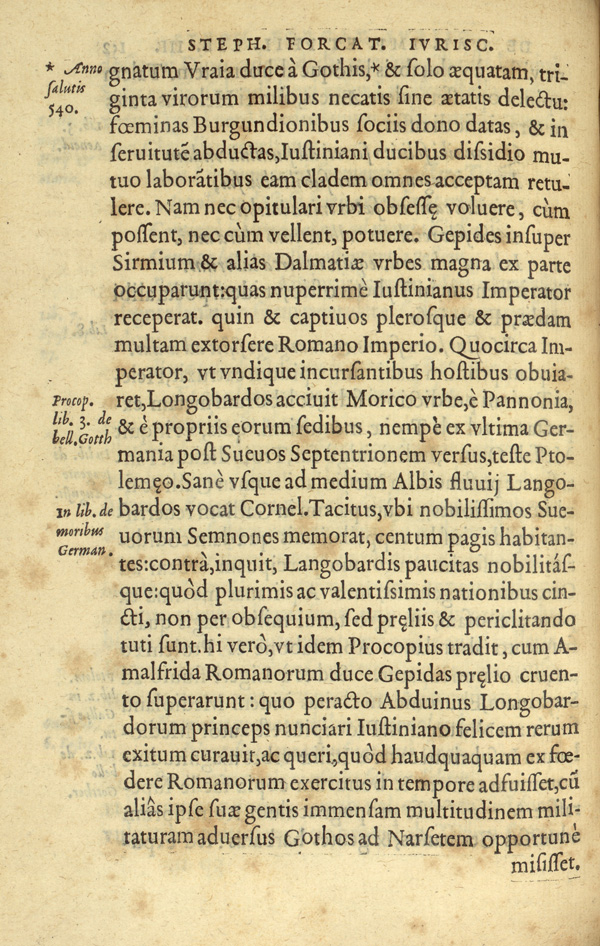 STEPH. FORCAT. IVRISC.
* Anno
ſalutis
540.
gnatum Vraia duce à Gothis,* & ſolo æquatam, tri-
ginta virorum milibus necatis ſine ætatis delectu:
fœminas Burgundionibus ſociis dono datas, & in
ſeruitutē abductas, Iuſtiniani ducibus diſſidio mu-
tuo laborātibus eam cladem omnes acceptam retu-
lere. Nam nec opitulari vrbi obſeſſę voluere, cùm
poſſent, nec cùm vellent, potuere. Gepides inſuper
Sirmium & alias Dalmatiæ vrbes magna ex parte
occuparunt: quas nuperrimè Iuſtinianus Imperator
receperat. quin & captiuos pleroſque & prædam
multam extorſere Romano Imperio. Quocirca Im-
perator, vt vndique incurſantibus hoſtibus obuia-
Procop.
lib. 3. de
bell. Gotth
ret, Longobardos acciuit Morico vrbe, è Pannonia,
& è propriis eorum ſedibus, nempè ex vltima Ger-
mania poſt Sueuos Septentrionem verſus, teſte Pto-
lemęo. Sanè vſque ad medium Albis fluuij Lango-
In lib. de
moribus
German.
bardos vocat Cornel. Tacitus, vbi nobiliſſimos Sue-
uorum Semnones memorat, centum pagis habitan-
tes: contrà, inquit, Langobardis paucitas nobilitáſ-
que: quòd plurimis ac valentiſſimis nationibus cin-
cti, non per obſequium, ſed pręliis & periclitando
tuti ſunt. hi verò, vt idem Procopius tradit, cum A-
malfrida Romanorum duce Gepidas pręlio cruen-
to ſuperarunt: quo peracto Abduinus Longobar-
dorum princeps nunciari Iuſtiniano felicem rerum
exitum curauit, ac queri, quòd haudquaquam ex fœ-
dere Romanorum exercitus in tempore adfuiſſet, cū
aliâs ipſe ſuæ gentis immenſam multitudinem mili-
taturam aduerſus Gothos ad Narſetem opportunè
miſiſſet.